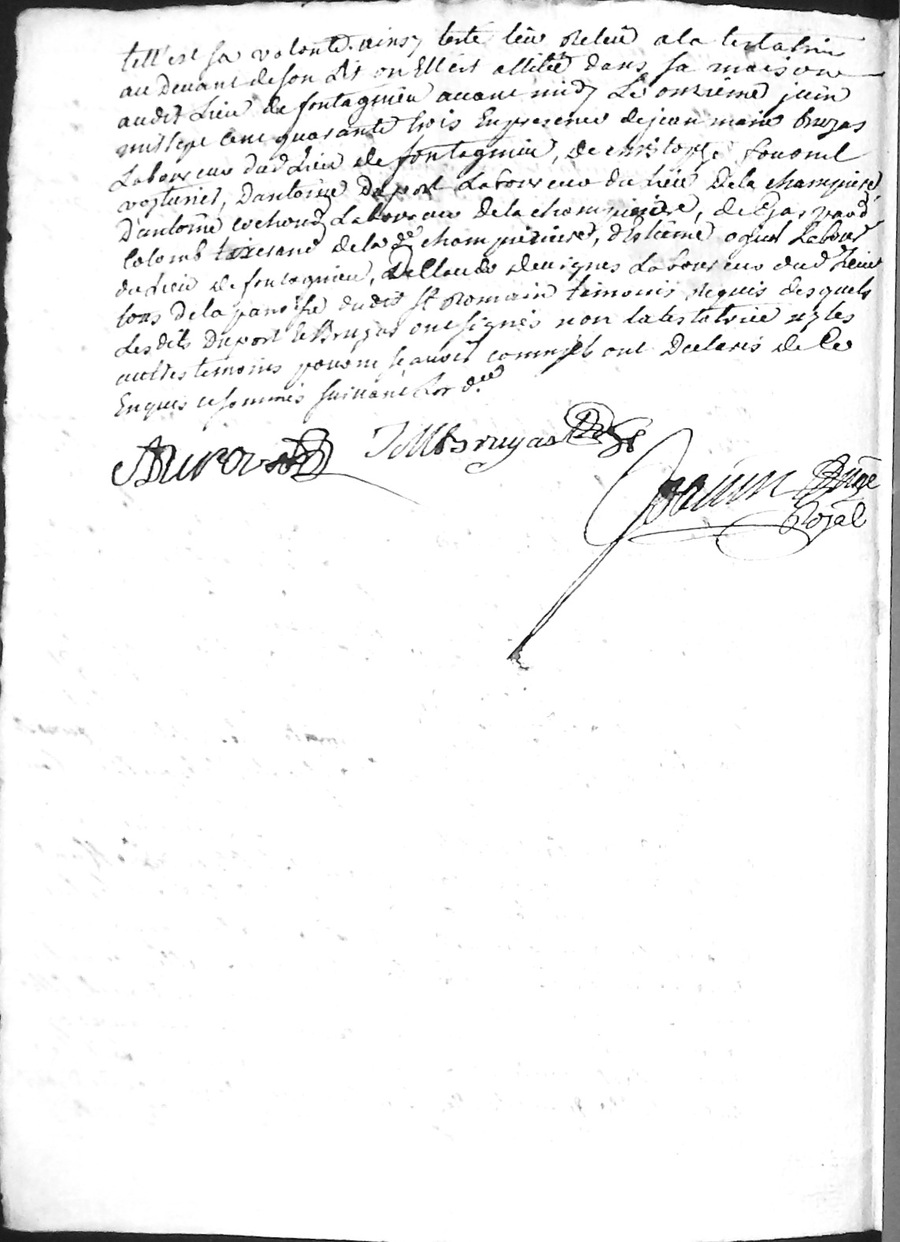 tell'est sa volonté. ainsy testé leu releu a la testatrice
au devant de son lit ou Ell'est allitée dans sa maison
audit Lieu de fontagnieu avant midy Le onzieme juin
mil sept cent quarante trois En presence de jean marie bruyas
Laboureur dud Lieu de fontagnieu, de christophe
voiturier, D'antoine Duport Laboureur du Lieu de la champiniere
D'antoine cochoud Laboureur de la champiniere, de Gaspard
Colomb tixerand de la de champiniere, d'Estienne ogier Labour
du Lieu de fontagnieu, De Claude Laboureur dud Lieu
tous de la paroisse dudit St Romain temoins requis desquels
Lesdits Duport & Bruyas ont signés non La testatrice ny les
autres temoins pour ne sçavoir comm'ils ont Declarés de Ce
Enquis et sommés suivant L'or ce
Duport JM Bruyas
Royal